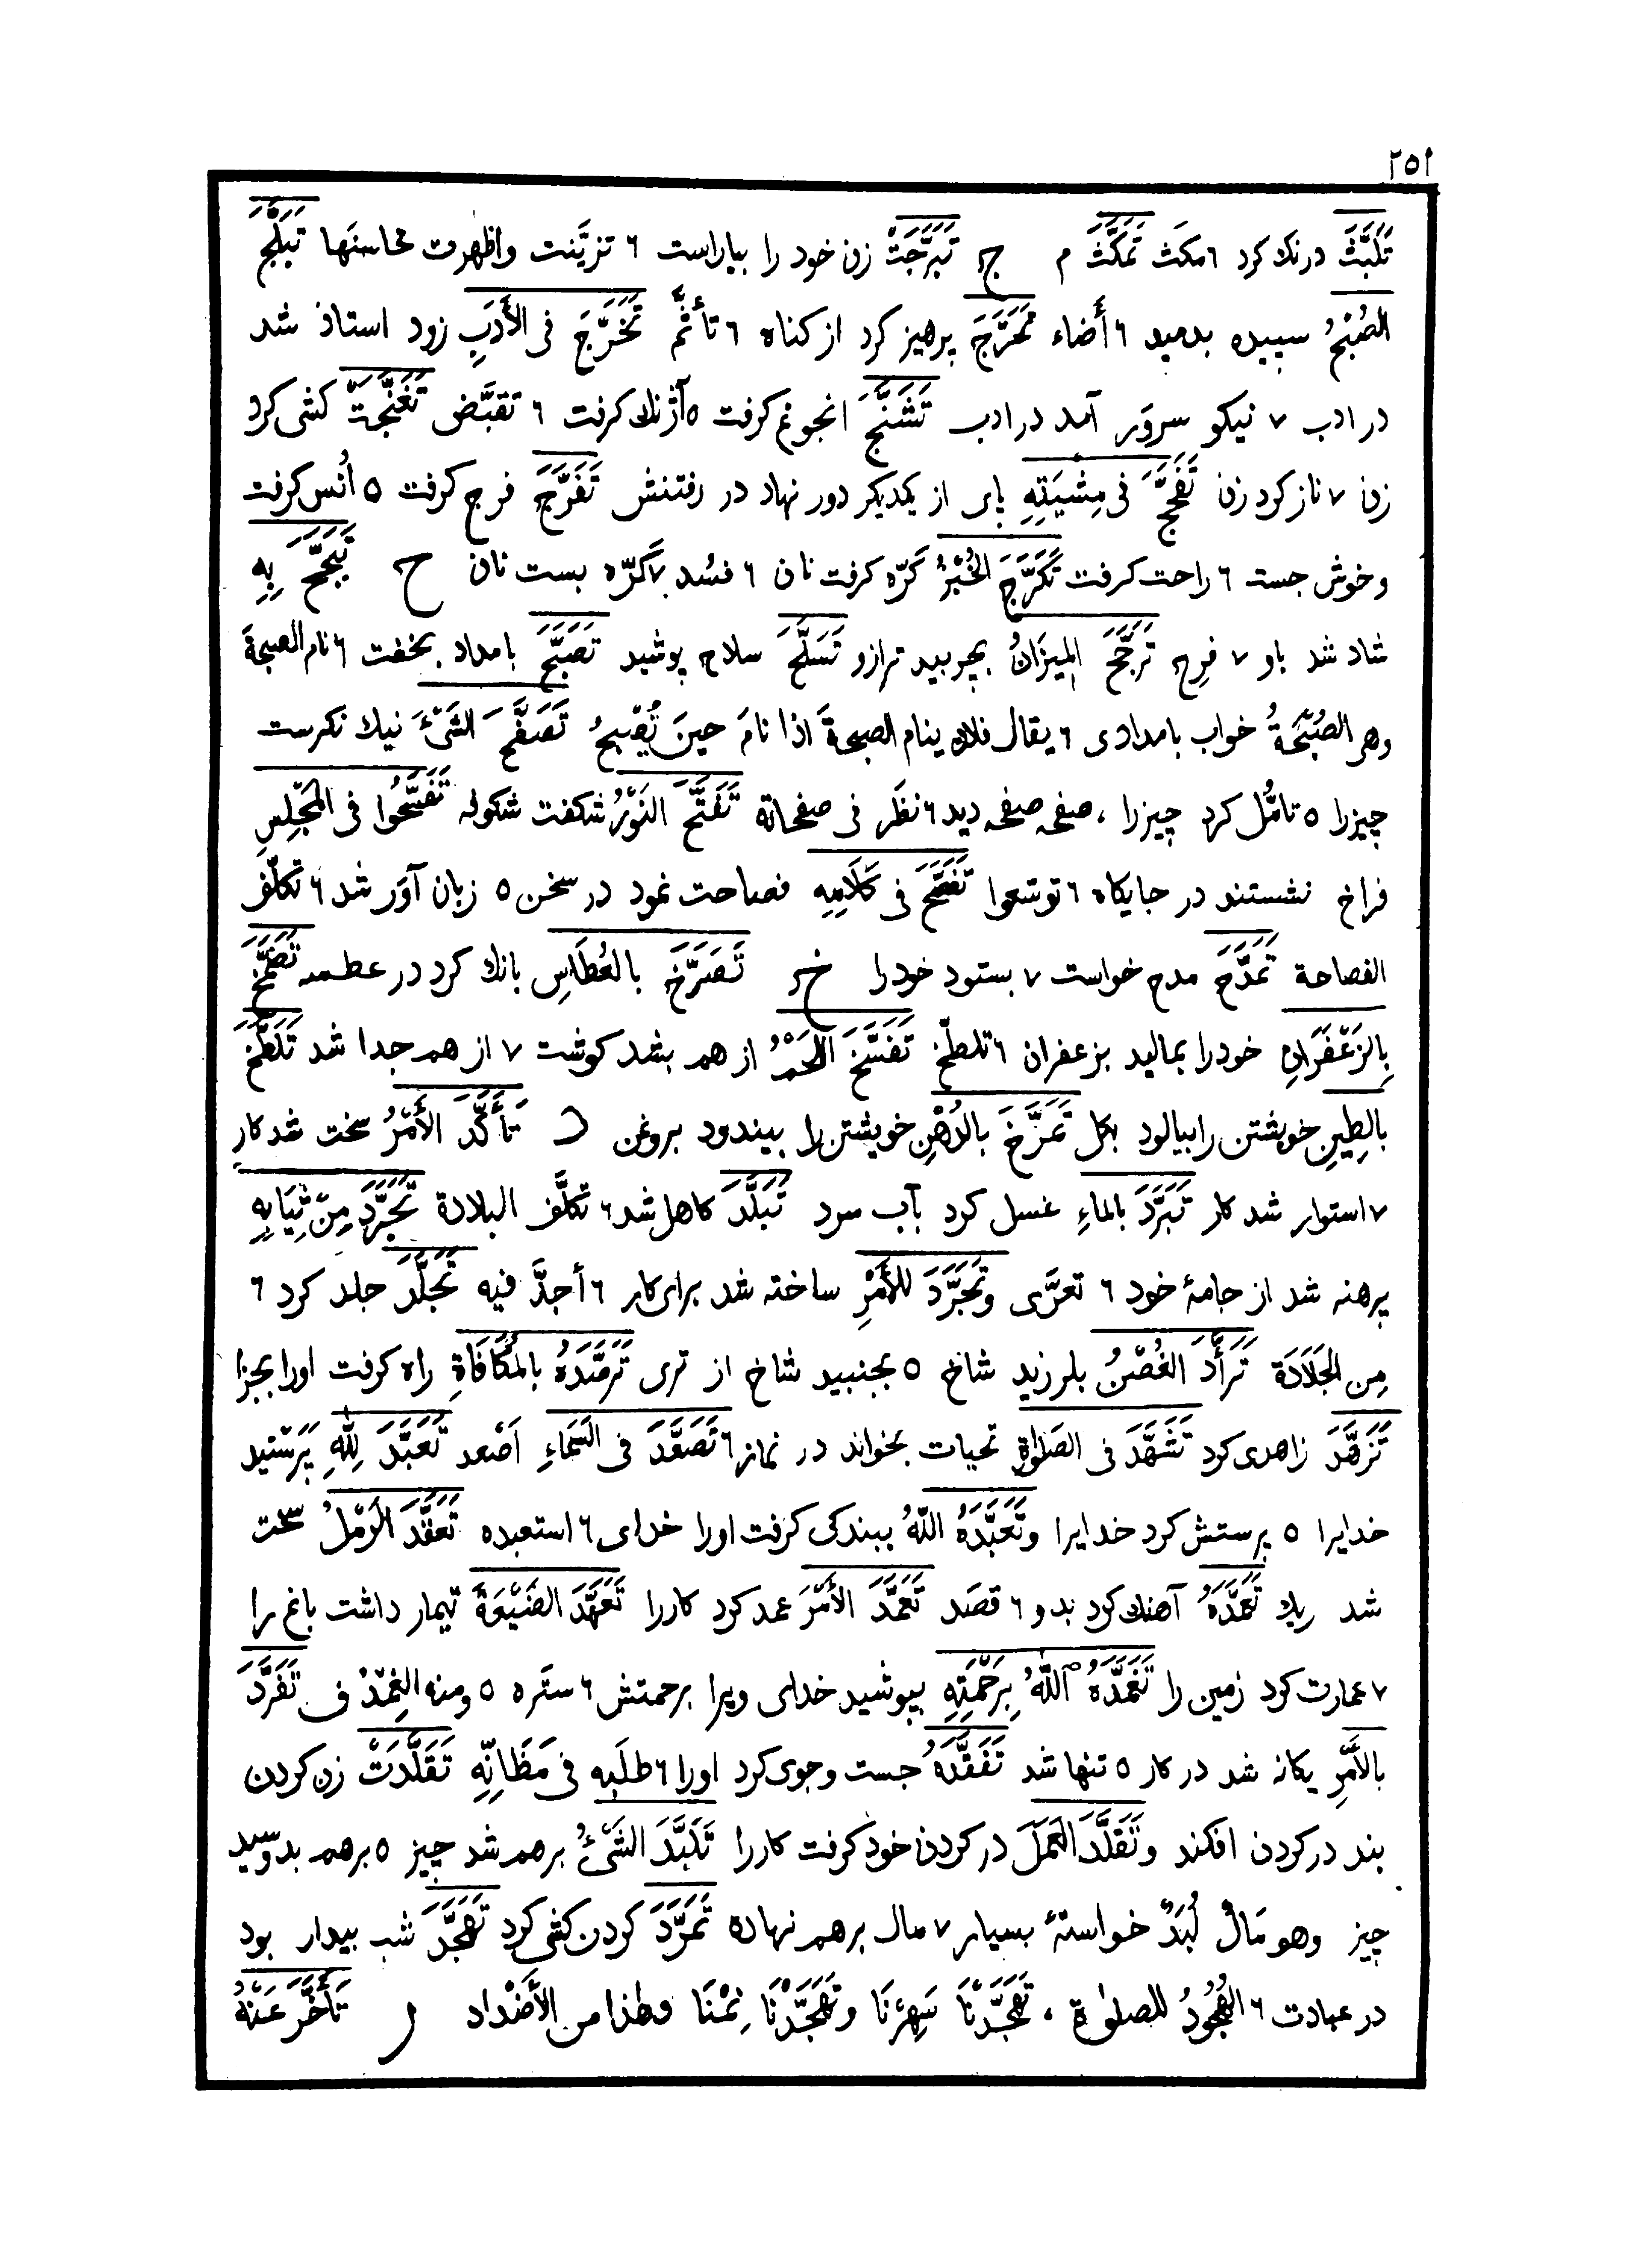 ٢٥١
تَلَبَّثَ درنك كرد ٦ مكَث تَمَكَّثَ م ج تَبَرَّجَتْ زن خود را بياراست ٦ تزيَّنت واظهرت محاسنَها تَبَلَّجَ
الصُبْحُ سپيده بدميد ٦ أَضاء تَحَرَّجَ پرهيز كرد از كناه ٦ تأثَّم تَخَرَّجَ فى الأَدَبِ زود استاذ شد
در ادب ٧ نيكو سرور آمد در ادب تَشَنَّجَ انجوغ كرفت ٥ آژنك كرفت ٦ تقبَّض تَغَنَّجَتْ كشى كرد
زن ٧ ناز كرد زن تَفَحَّجَ فى مِشْيَتِهِ پاى از يكديكر دور نهاد در رفتنش تَفَرَّجَ فرج كرفت ٥ اُنس كرفت
وخوش جست ٦ راحت كرفت تَكَرَّجَ الخُبْزُ كَرّه كرفت نان ٦ فسُد ٧ كَرّه بست نان ح تَبَجَّحَ بِهِ
شاد شد باو ٧ فرِح تَرَجَّحَ المِيزَانُ بچربيد ترازو تَسَلَّحَ سلاح پوشيد تَصَبَّحَ بامداد بخفت ٦ نام الصبحةَ
وهى الصُبْحَةُ خواب بامدادى ٦ يقال فلان ينام الصبحةَ اذا نامَ حينَ تُصْبحُ تَصَفَّحَ الشَىْءَ نيك نكرست
چيزرا ٥ تامُّل كرد چيزرا ، صفحه صفحه ديد ٦ نظَر فى صفحاته تَفَتَّحَ النَوْرُ شكفت شكوفه تَفَسَّحُوا فى المَجْلِسِ
فراخ نشستند در جايكاه ٦ توسّعوا تَفَصَّحَ فى كَلَامِهِ فصاحت نمود در سخن ٥ زبان آوَر شد ٦ تكلّف
الفصاحة تَمَدَّحَ مدح خواست ٧ بستود خود را خ تَصَرَّخَ بالعُطَاسِ بانك كرد در عطسه تَضَمَّخَ
بِالزَعْفَرَانِ خود را بماليد بزعفران ٦ تلطّخ تَفَسَّخَ اللَحْمُ از هم بشد كوشت ٧ از هم جدا شد تَلَطَّخَ
بالطِينِ خويشتن را بيالود بكل تَمَرَّخَ بالدُهْنِ خويشتن را بيندود بروغن د تَأَكَّدَ الأَمْرُ سخت شد كار
٧ استوار شد كار تَبَرَّدَ بالماءِ غسل كرد بآب سرد تَبَلَّدَ كاهل شد ٦ تكلَّف البلادة تَجَرَّدَ مِنْ ثِيَابِهِ
برهنه شد از جامهٔ خود ٦ تعرَّى وتَجَرَّدَ للأَمْرِ ساخته شد براى كار ٦ أجدَّ فيه تَجَلَّدَ جلد كرد ٦
مِن الجَلَادَة تَرَأَّدَ الغُصْنُ بلرزيد شاخ ٥ بجنبيد شاخ از ترى تَرَصَّدَهُ بالمُكَافَاةِ راه كرفت اورا بجزا
تَزَهَّدَ زاهدى كرد تَشَهَّدَ فى الصَلٰوةِ تحيات بخواند در نماز ٦ تَصَعَّدَ فى السَمَاءِ اَصْعد تَعَبَّدَ لِلّٰهِ پَرَستيد
خدايرا ٥ پرستش كرد خدايرا وتَعَبَّدَهُ اللّٰهُ ببندكى كرفت اورا خداى ٦ استعبده تَعَقَّدَ الرَمْلُ سخت
شد ريك تَعَمَّدَهُ آهنك كرد بدو ٦ قصَد تَعَمَّدَ الأَمْرَ عمد كرد كاررا تَعَهَّدَ الضَيْعَةَ تيمار داشت باغ را
٧ عمارت كرد زمين را تَغَمَّدَهُ اللّٰهُ بِرَحْمَتِهِ بپوشيد خداى ويرا برحمتش ٦ ستَره ٥ ومنه الغِمْدُ ف تَفَرَّدَ
بالأَمْرِ يكانه شد در كار ٥ تنها شد تَفَقَّدَهُ جست وجوى كرد اورا ٦ طلَبه فى مَظَانِّهِ تَقَلَّدَتْ زن كردن
بند در كردن افكند وتَقَلَّدَ العَمَلَ در كردن خود كرفت كاررا تَلَبَّدَ الشَىْءُ برهم شد چيز ٥ برهم بدوسيد
چيز وهو مَالٌ لُبَدٌ خواستهٔ بسيار ٧ مال برهم نهاده تَمَرَّدَ كردن كشى كرد تَهَجَّدَ شب بيدار بود
در عبادت ٦ الهُجُودُ للصلوٰة ، تَهَجَّدْنَا سَهِرْنَا وتَهَجَّدْنَا نِمْنَا وهٰذا من الأَضْداد ر تَأَخَّرَ عَنْهُ